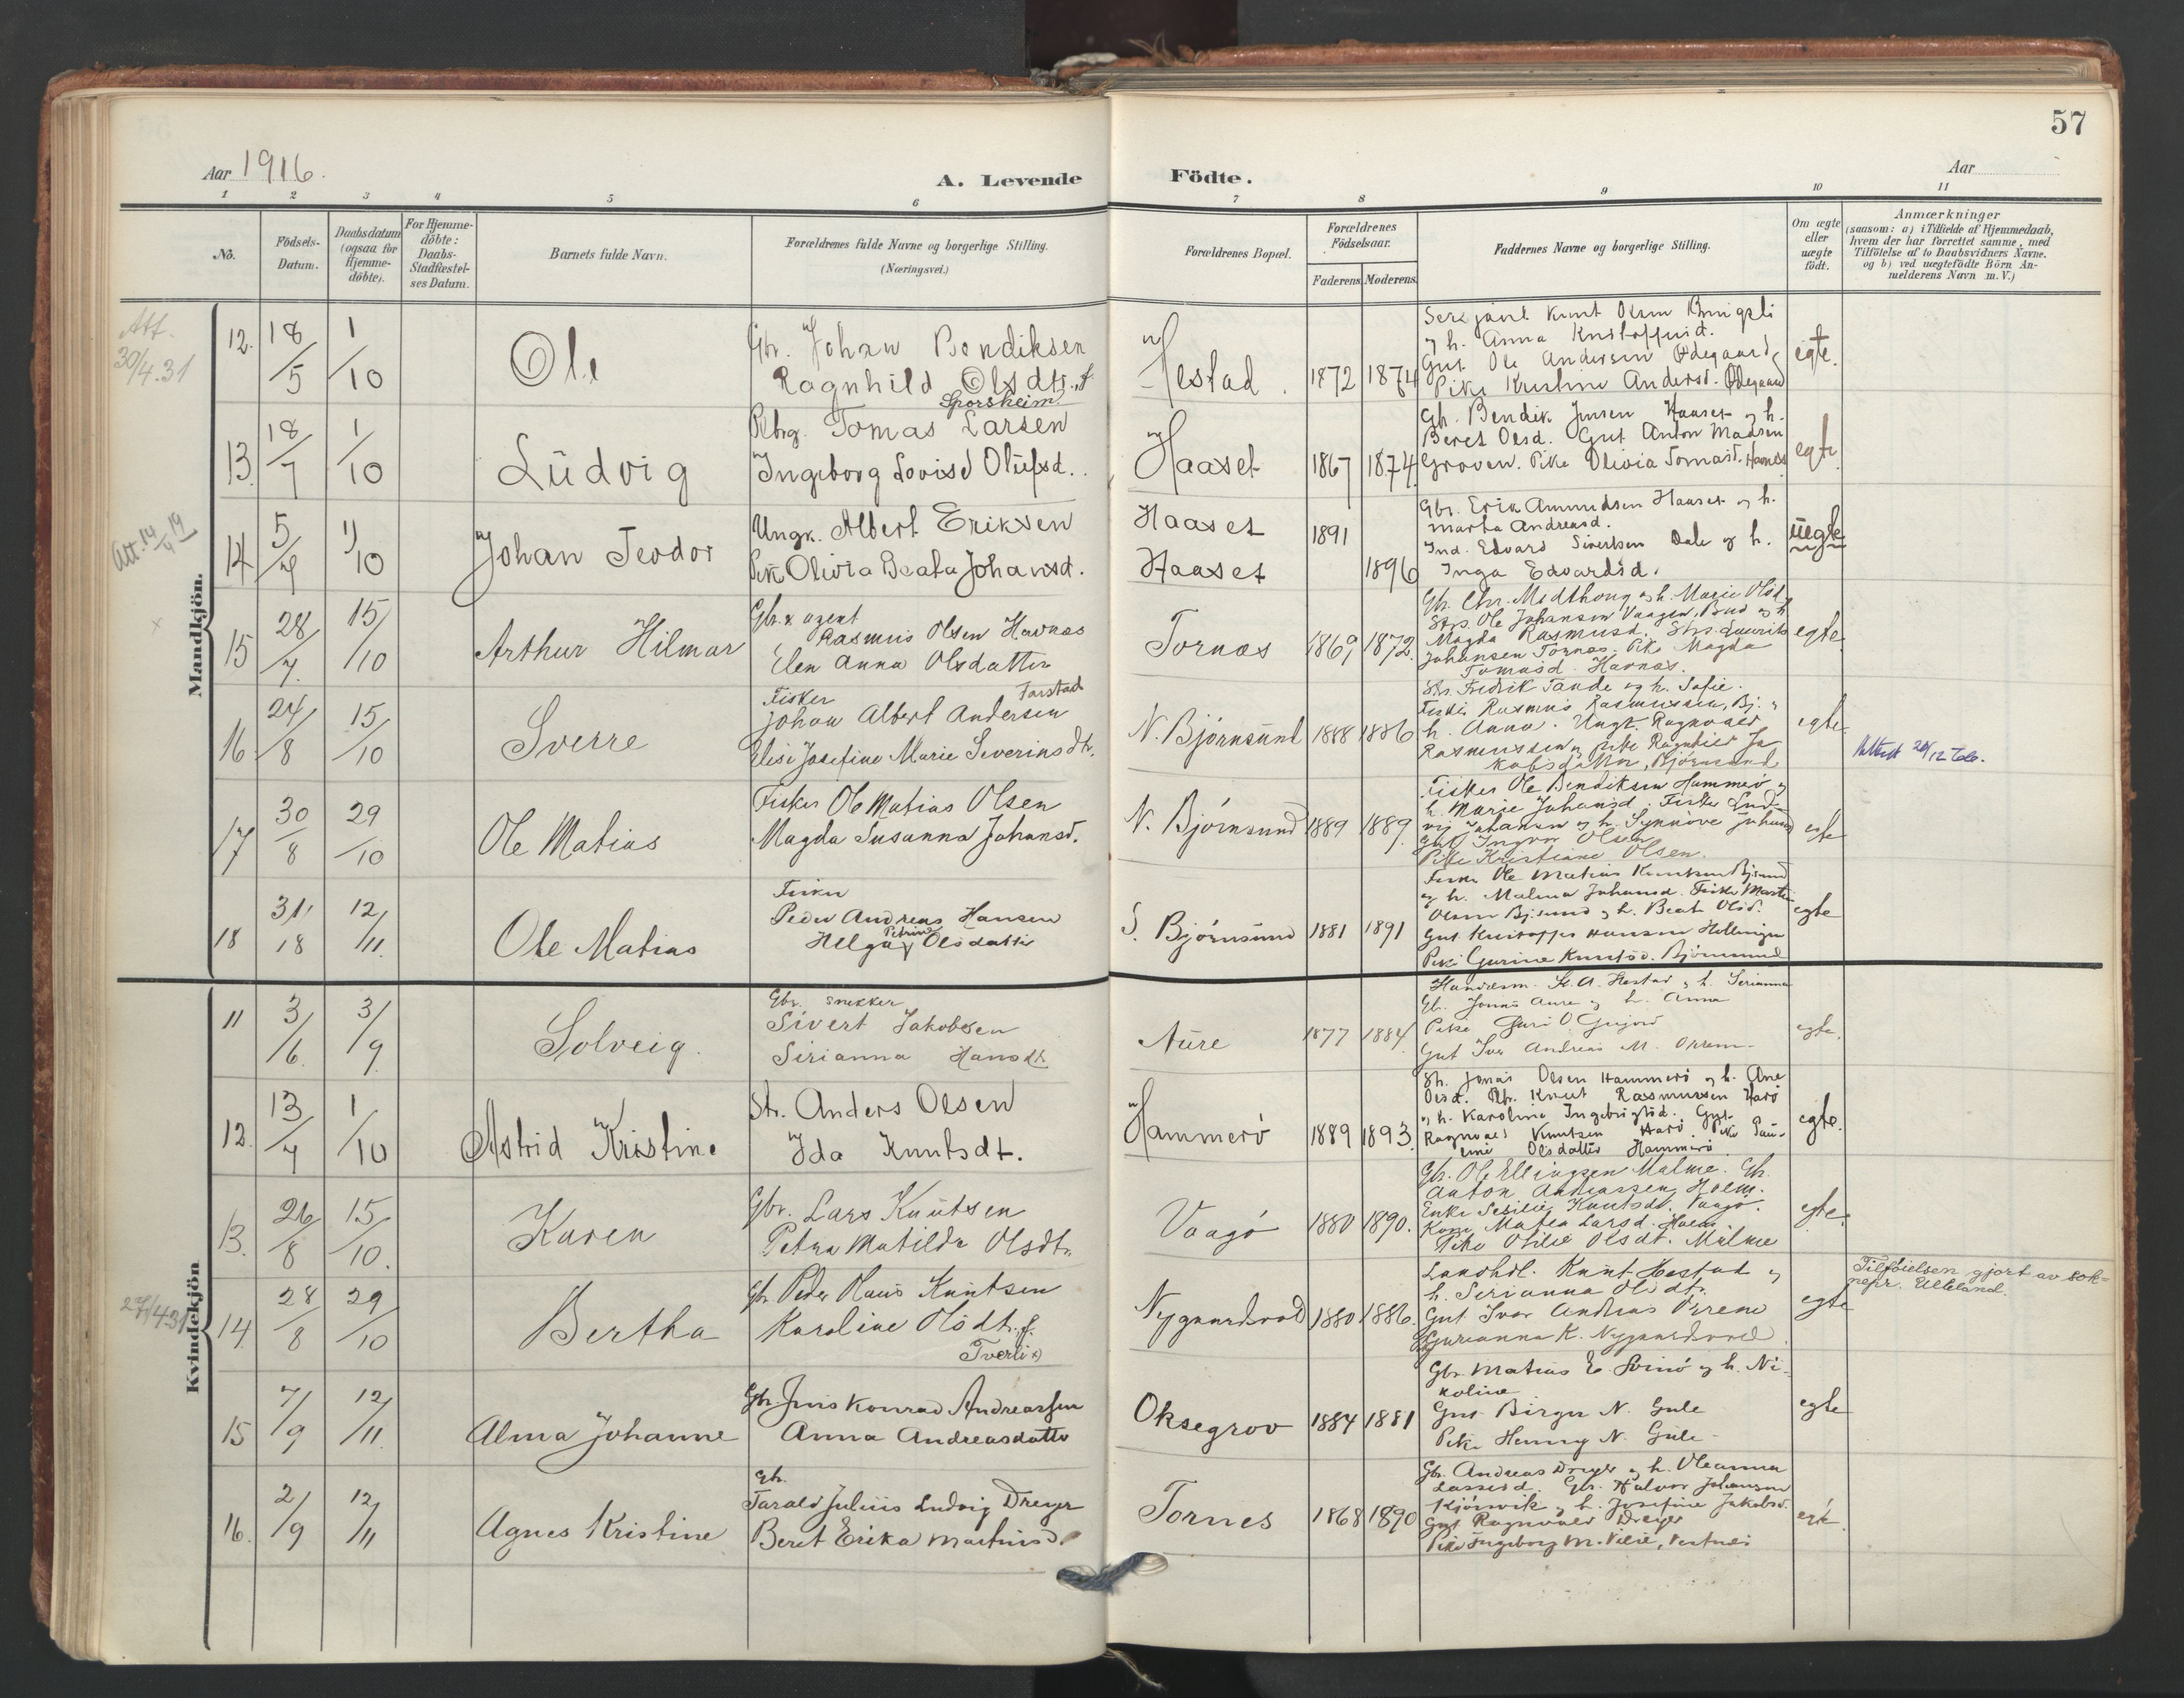 57
Aar 1916.
A. Levende Födte.
Aar
1 2 3 4 5 6 7 8 9 10 11
No.
Födsels-Datum.
Daabsdatum (ogsaa for Hjemme-döbte).
For Hjemme-döbte: Daabs-Stadfæstel-ses Datum.
Barnets fulde Navn.
Forældrenes fulde Navne og borgerlige Stilling.
(Næringsvei.)
Forældrenes Bopæl.
Forældrenes Födselsaar.
Faderens Moderens
Faddernes Navne og borgerlige Stilling.
Om ægte eller uægte födt.
Anmærkninger
(saasom: a) i Tilfælde af Hjemmedaab, hvem der har forrettet samme, med Tilföielse af to Daabsvidners Navne. og b) ved uægtefödte Börn An-melderens Navn m. V.)
Mandkjön.
Att. 30/4.31
12. 18/5 1/10 Ole
Gbr. Johan Bendiksen
Ragnhild Olsdtr. f.
Sporsheim
Hestad. 1872 1874
Serjant Knut Olsen
og h. Anna Kristoffersd.
Gut Ole Andersen Ødegaard
Pike Kristine Andersd. Ødegaard
egte.
13. 18/7 1/10 Ludvig
Tomas Larsen
Ingeborg Lovise Olufsd.
Haaset 1867 1874
Gbr. Bendik Jensen Haaset og h.
Beret Olsd. Gut Anton Madsen
Groven. Pike Olivia Tomasd. Havnes
egte
Att. 14/4 19
14 5/7 1/10 Johan Teodor
Ungk. Albert Eriksen
Pike Olivia Beata Johansd.
Haaset 1891
Haaset 1896
Gbr. Erik Ammundsen Haaset og h.
Marta Andreasd.
Ind. Edvard Sivertsen Dale og h.
Inga Edvardsd.
uegte
x
15 28/7. 15/10 Arthur Hilmar
Gbr. & agent
Rasmus Olsen Havnæs
Elen Anna Olsdatter
Tornæs 1869 1872.
Gbr. Chr. Medthoug og h. Marie Olsd.
Strs. Ole Johansen Vaagen, Bud og h.
Magda Rasmusd. Strs. Laurits
Johansen Tornæs. Pike Magda
Tomasd. Havnæs.
egte
16. 24/8 15/10 Sverre
Fisker Tarstad
Johan Albert Andersen
Elise Josefine Marie Severinsdtr.
N. Björnsund 1888 1886
Str. Fredrik Tande og h. Sofie.
Fisker Rasmus Rasmussen, Bj. og
h. Anna. Ungk. Ragnvald
Rasmussen og pike Ragnhild Ja-
kobsdatter, Björnsund
egte
17 30/8 29/10 Ole Matias
Fisker Ole Matias Olsen
Magda Susanna Johansd.
N. Björnsund 1889 1889
Fisker Ole Bendiksen Hammerö og
h. Marie Johansd. Fisker Lud-
vig Johansen og h. Synnöve Johansd
Gut Ingvar Olsen
Pike Kristiane Olsen.
egte
18 31/18 12/11. Ole Matias
Fisker
Peder Andreas Hansen
Helga Petrine Olsdatter
S. Björnsund 1881 1891
Fisker Ole Matias Knutsen Bjsund
og h. Malena Johansd. Fisker Martin
Olsen Bjsund og h. Beate Olsd.
Gut Kristoffer Hansen
Pike Gurine Knutsd. Björnsund
egte
Kvindekjön
11 3/6. 3/9 Solveig.
Gbr. snekker
Sivert Jakobsen
Sirianna Hansdt.
Aure 1877 1884
Handelsm. K. A. Hestad og h. Serianna
Gbr. Jonas Aure og h. Anna
Pike Guri O.
Gut Iver Andreas M.
egte.
12. 13/7 1/10 Astrid Kristine
Str. Anders Olsen
Ida Knutsdt.
Hammerö 1889 1893
Str. Jonas Olsen Hammerö og h. Ane
Olsd. Knut Rasmussen Harö
og h. Karoline Ingebrigtsd. Gut
Ragnvald Knutsen Harö. Pike Pau-
line Olsdatter Hammerö.
egte.
13. 26/8 15/10. Karen
Gbr. Lars Knutsen
Petra Matilde Olsdt.
Vaagö 1880 1890.
Gbr. Ole Ellingsen Malme. Gbr.
Anton Andreassen Holm.
Enke Sesilie Knutsdt. Vaagö.
Kone Matea Larsd. Holm
Pike Otilie Olsdt. Malme
egte.
27/4 31
14. 28/8 29/10 Bertha
Gbr. Peder Hans Knutsen
Karoline Olsdtr. f.
Tverli x)
Nygaardsvad 1880 1886.
Landhdl. Knut Hestad og
h. Serianna Olsdtr.
Gut Ivar Andreas
Gurianna K. Nygaardsvad
egte
Tilföielsen gjort av sok-
nepr. Ulleland.
15 7/9 12/11. Alma Johanne
Gbr. Jens Konrad Andreassen
Anna Andreasdatter
Oksegrov 1884 1881
Gbr. Matias E. Svinö og h. Ni-
koline
Gut Birger N. Gule
Pike Henny N. Gule
egte
16. 2/9 12/11 Agnes Kristine
Gbr.
Tarald Julius Ludvig Dreyer
Beret Erika Martinsd.
Tornes 1868 1890
Gbr. Andreas Dreyer og h. Oleanna
Lassesd. Gbr. Halvor Johansen
Kjörsvik og h. Josefine Jakobsd.
Gut Ragnvald Dreyer
Pike Ingeborg M.
egte